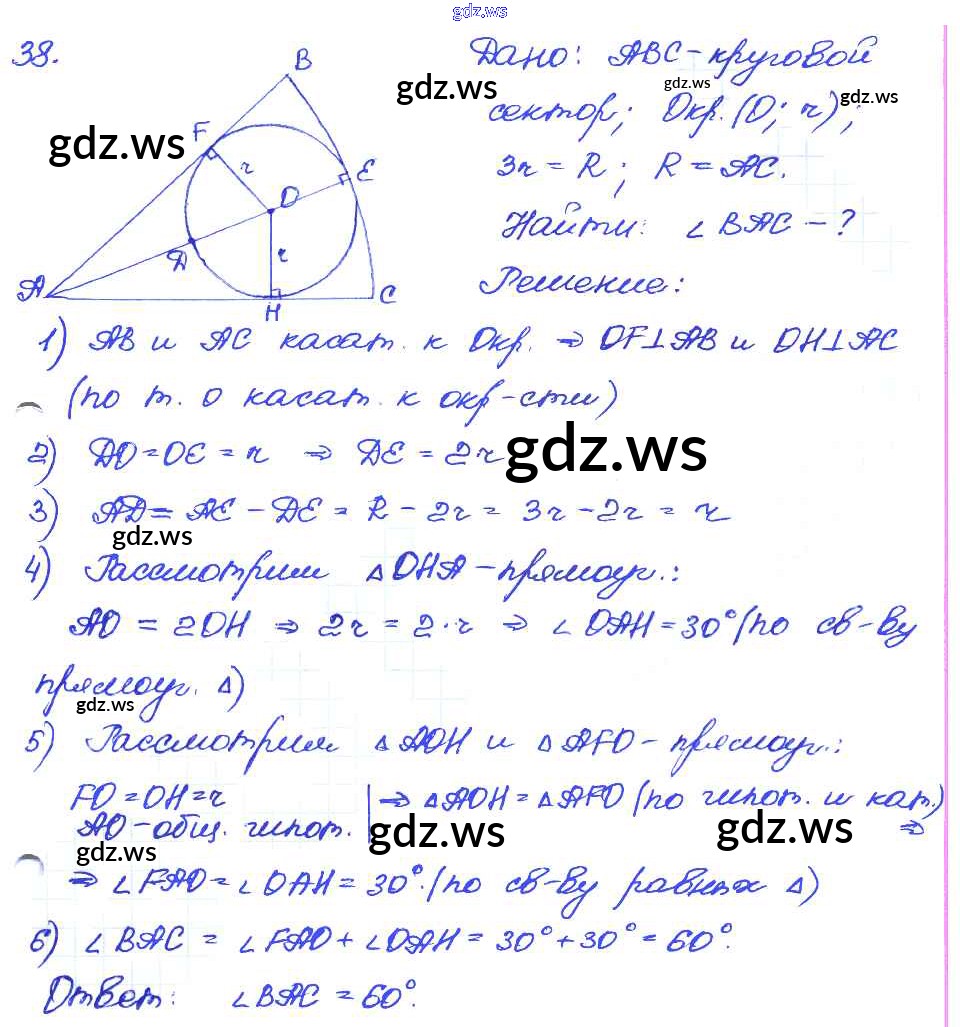 gdz.ws
38.
Дано: ABC-круговой
сектор; Окр.(O; r);
3r = R; R = AC.
Найти: ∠BAC - ?
Решение:
B
F
r
E
O
D
r
A
H
C
gdz.ws
gdz.ws
gdz.ws
gdz.ws
1) AB и AC касат. к Окр. ⇒ OF⊥AB и OH⊥AC
(по т. о касат. к окр-сти)
2) DO=OE = r ⇒ DE = 2r
gdz.ws
3) AD = AE - DE = R - 2r = 3r - 2r = r
gdz.ws
4) Рассмотрим △OHA-прямоуг.:
AO = 2OH ⇒ 2r = 2·r ⇒ ∠OAH = 30° (по св-ву
прямоуг. △)
gdz.ws
5) Рассмотрим △AOH и △AFO - прямоуг.:
FO = OH = r | ⇒ △AOH = △AFO (по гипот. и кат.)
AO-общ. гипот. | ⇒
gdz.ws
gdz.ws
gdz.ws
⇒ ∠FAO = ∠OAH = 30°. (по св-ву равных △)
6) ∠BAC = ∠FAO + ∠OAH = 30° + 30° = 60°.
Ответ: ∠BAC = 60°.